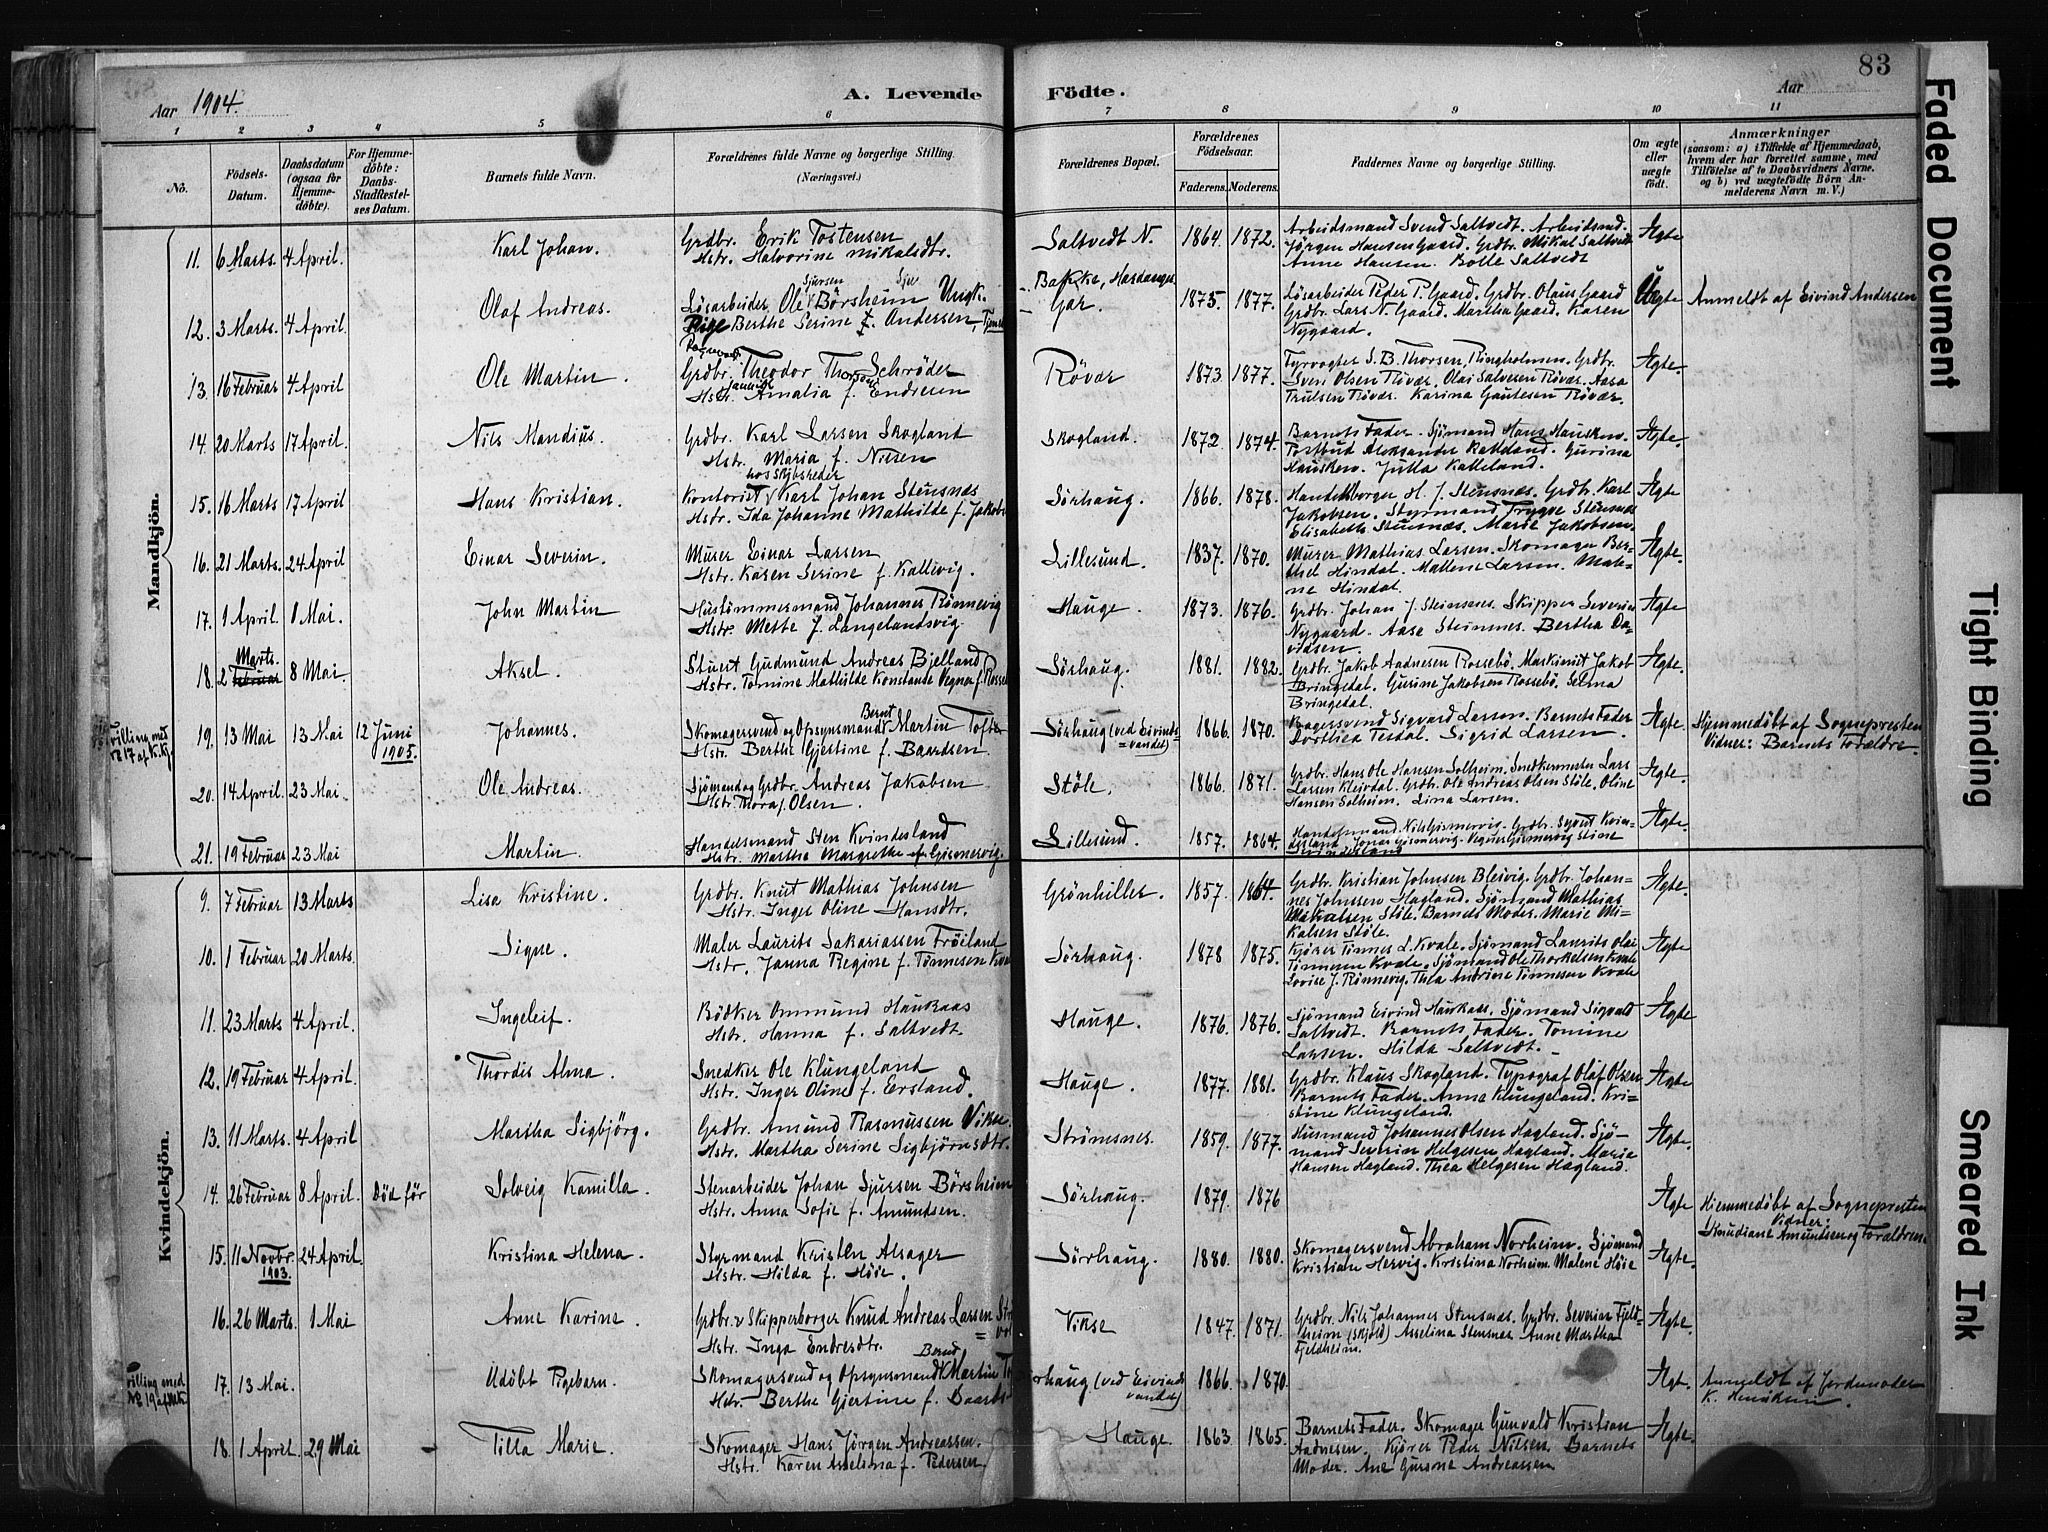 83
Aar 1904.
A. Levende Födte.
Aar
1 2 3 4 5 6 7 8 9 10 11
No.
Födsels-Datum.
Daabsdatum (ogsaa for Hjemme-döbte).
For Hjemme-döbte: Daabs-Stadfæstel-ses Datum.
Barnets fulde Navn.
Forældrenes fulde Navne og borgerlige Stilling. (Næringsvei.)
Forældrenes Bopæl.
Forældrenes Födselsaar.
Faderens. Moderens.
Faddernes Navne og borgerlige Stilling.
Om ægte eller uægte født.
Anmærkninger
(saasom: a) i Tilfælde af Hjemmedaab, hvem der har forrettet samme, med Tilföielse af to Daabsvidners Navne. og b) ved uægtefödte Börn An-melderens Navn m. V.)
Mandkjön.
11. 6 Marts. 4 April. Karl Johan. Grdbr. Erik Tostensen
Hstr. Halvorine Mikalsdtr. Saltvedt N. 1864. 1872. Arbeidsmand Svend Saltvedt. Arbeidsmd.
Jørgen Hansen Gaard. Grdbr. Mikal Saltvedt
Anne Hansen. Bolle Saltvedt Ægte
12. 3 Marts. 4 April. Olaf Andreas. Løsarbeider Ole Sjursen Börsheim Ungk.
Pige Berthe Serine Andersen, Bakke, Hardanger
Gar. 1875. 1877. Løsarbeider Peder P. Gaard. Grdbr. Olaus Gaard
Grdbr. Lars N. Gaard. Martha Gaard. Karen
Nygaard. Uægte Anmeldt af Eivind Andersen
13. 16 Februar 4 April Ole Martin. Grdbr. Theodor Thorsen Schrøder
Hstr. Amalia f. Endresen Røvær 1873 1877. Fyrvogter S. B. Thorsen, Ringholmen. Grdbr.
Sven Olsen Røvær. Olai Salvesen Røvær. Aasa
Trulsen Røvær. Karina Gautesen Røvær. Ægte.
14. 20 Marts 17 April. Nils Mandius. Grdbr. Karl Larsen Skogland
Hstr. Maria f. Nilsen Skogland. 1872 1874. Barnets Fader. Sjømand Hans Hausken.
Postbud Aleksander Kalleland. Gurina
Hausken. Jutta Kalleland. Ægte.
15. 16 Marts 17 April Hans Kristian. hos Skibsreder
Kontorist Karl Johan Stensnæs
Hstr. Ida Johanne Mathilde f. Jakobs Sørhaug. 1866. 1878. Handelsborger H. J. Stensnæs. Grdbr. Karl
Jakobsen. Styrmand Trygve Stensnæs
Elisabeth Stensnæs. Marie Jakobsen. Ægte
16. 21 Marts. 24 April Einar Severin. Murer Einar Larsen
Hstr. Karen Serine f. Kallevig. Lillesund. 1837. 1870. Murer Mathias Larsen. Skomager Ber-
thel Hindal. Mallene Larsen. Male-
ne Hindal. Ægte.
17. 1 April. 1 Mai. John Martin Hustömmermand Johannes Rønnevig
Hstr. Mette f. Langelandsvig. Hauge. 1873. 1876. Grdbr. Johan J. Steinsnes. Skipper Severin
Nygaard. Aase Steinsnes. Bertha Da-
vidsen. Ægte
18. 2 Marts. Februar 8 Mai. Aksel. Stuert Gudmund Andreas Bjelland
Hstr. Tomine Mathilde Konstanse Vegner f. Rosse Sørhaug. 1881. 1882. Grdbr. Jakob Aadnesen Rossebø. Maskinist Jakob
Bringedal. Gurine Jakobsen Rossebø. Selma
Bringedal. Ægte.
Tvilling med No 17 af K.Kj.
19. 13 Mai 13 Mai 12 Juni 1905. Johannes. Skomagersvend og Opsynsmand Bernt Martin Tofte
Hstr. Berthe Gjestine f. Baardsen. Sørhaug (ved Eivinds-
vandet) 1866. 1870. Bagersvend Sigvard Larsen. Barnets Fader
Dorthea Tesdal. Sigrid Larsen. Ægte. Hjemmedøbt af Sognepresten
Vidner: Barnets Forældre.
20. 14 April. 23 Mai. Ole Andreas. Sjømand og Grdbr. Andreas Jakobsen
Hstr. Thora f. Olsen. Støle. 1866. 1871. Grdbr. Hans Ole Hansen Solheim. Snedkermester Lars
Larsen Kleivdal. Grdb. Ole Andreas Olsen Støle. Oline
Hansen Solheim. Lina Larsen. Ægte.
21. 19 Februar 23 Mai Martin. Handelsmand Sten Kvindesland
Hstr. Martha Margrethe f. Gismervig. Lillesund. 1857. 1864. Handelsmand Nils Gismervig. Grdbr. Sivert Kvin-
desland. Jonas Gismervig. Stine
Kvindesland Ægte.
Kvindekjön.
9. 7 Februar 13 Marts Lisa Kristine. Grdbr. Knut Mathias Johnsen
Hstr. Inger Oline Hansdtr. Grønhilles. 1857. 1864. Grdbr. Kristian Johnsen Bleivig. Grdbr. Johan-
nes Johnsen Hagland. Sjømand Mathias
Mikalsen Støle. Barnets Moder. Marie Mi-
kalsen Støle. Ægte.
10. 1 Februar 20 Marts. Signe. Maler Laurits Sakariassen Frøiland
Hstr. Janna Regine f. Tønnesen Kva Sørhaug. 1878 1875. Kjører Tønnes L. Kvale. Sjømand Laurits Olai
Tønnesen Kvale. Sjømand Ole Thorkelsen Kvale
Lovise J. Rønnevig. Thea Andrine Tønnesen Kvale Ægte
11. 23 Marts 4 April. Ingeleif. Bødker Ommund Haukaas
Hstr. Hanna f. Saltvedt. Hauge. 1876. 1876. Sjømand Eivind Haukaas. Sjømand Sigvald
Saltvedt. Barnets Fader. Tomine
Larsen. Hilda Saltvedt. Ægte
12. 19 Februar 4 April. Thordis Alma. Snedker Ole Klungeland
Hstr. Inger Oline f. Ersland. Hauge. 1877. 1881. Grdbr. Klaus Skogland. Typograf Olaf Olsen
Barnets Fader. Anna Klungeland. Kri-
stine Klungeland. Ægte.
13. 11 Marts. 4 April Martha Sigbjörg. Grdbr. Amund Rasmussen Vikse
Hstr. Martha Serine Sigbjørnsdtr. Strømsnes. 1859. 1877. Husmand Johannes Olsen Hagland. Sjø-
mand Severin Helgesen Hagland. Marie
Hansen Hagland. Thea Helgesen Hagland. Ægte.
14. 26 Februar 8 April. Död før Solveig Kamilla. Stenarbeider Johan Sjursen Börsheim
Hstr. Anna Sofie f. Amundsen. Sørhaug. 1879. 1876 Ægte Hjemmedøbt af Sognepresten
Vidner:
Knudiane Amundsen og Forældrene
15. 11 Novbr. 1903. 24 April. Kristina Helena. Styrmand Kristen Alsager
Hstr. Hilda f. Høie. Sørhaug. 1880. 1880. Skomagersvend Abraham Norheim. Sjømand
Kristian Hervig. Kristina Norheim. Malene Høie Ægte.
16. 26 Marts. 1 Mai Anne Karine. Grdbr. v Skipperborger Knud Andreas Larsen
Hstr. Inga Endresdtr. Vikse 1847. 1871. Grdbr. Nils Johannes Stensnes. Grdbr. Severin Fjeld-
heim (Skjold) Asselina Stensnes. Anne Martha
Fjeldheim. Ægte.
Tvilling med No 19 af Mk
17. 13 Mai. Udöbt Pigebarn. Skomagersvend og Opsynsmand Bernd Martin
Hstr. Berthe Gjertine f. Baards Sørhaug (ved Eivinds-
vandet) 1866. 1870. Ægt. Anmeldt af Jordemoder
K.
18. 1 April. 29 Mai Tilla Marie. Skomager Hans Jörgen Andreassen.
Hstr. Karen Asselina f. Pedersen. Hauge. 1863. 1865. Barnets Fader. Skomager Gunvald Kristian
Aadnesen. Kjører Peder Nilsen. Barnets
Moder. Ane Gurine Andreassen Ægte.
Faded Document
Tight Binding
Smeared Ink